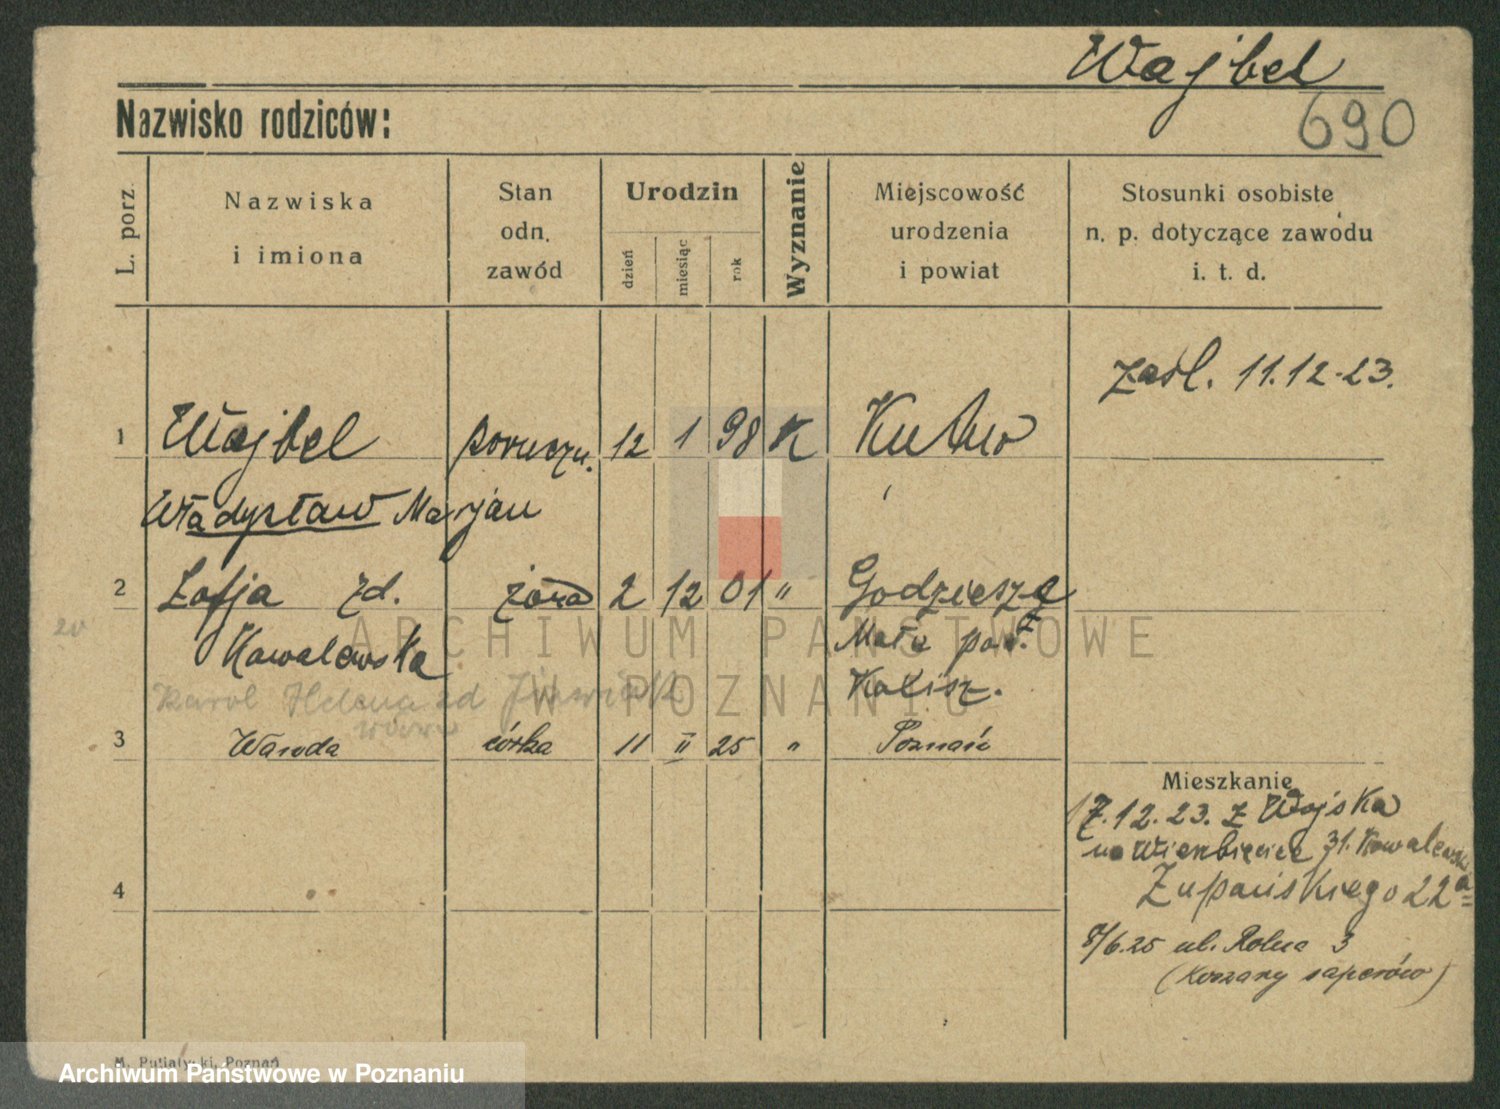 Wajbel
Nazwisko rodziców:
690
L. porz.
Nazwiska
i imiona
Stan
odn.
zawód
Urodzin
dzień
miesiąc
rok
Wyznanie
Miejscowość
urodzenia
i powiat
Stosunki osobiste
n. p. dotyczące zawodu
i. t. d.
zaśl. 11.12.23.
1 Wajbel poruczn. 12 1 98 K Kutno
Władysław Marjan
2 Zofja zd. żona 2 12 01 " Godziesze
Kowalewska Małe pow.
Kalisz.
Karol Helena zd
3 Wanda córka 11 II 25 " Poznań
Mieszkanie
17.12.23. z Wojska
na Wierzbięcice 31. Kowalewska
Żupańskiego 22a
8/6.25 ul. Rolna 3
(Koszary saperów)
4
ARCHIWUM PAŃSTWOWE
W POZNANIU
M. Putiatycki, Poznań
Archiwum Państwowe w Poznaniu